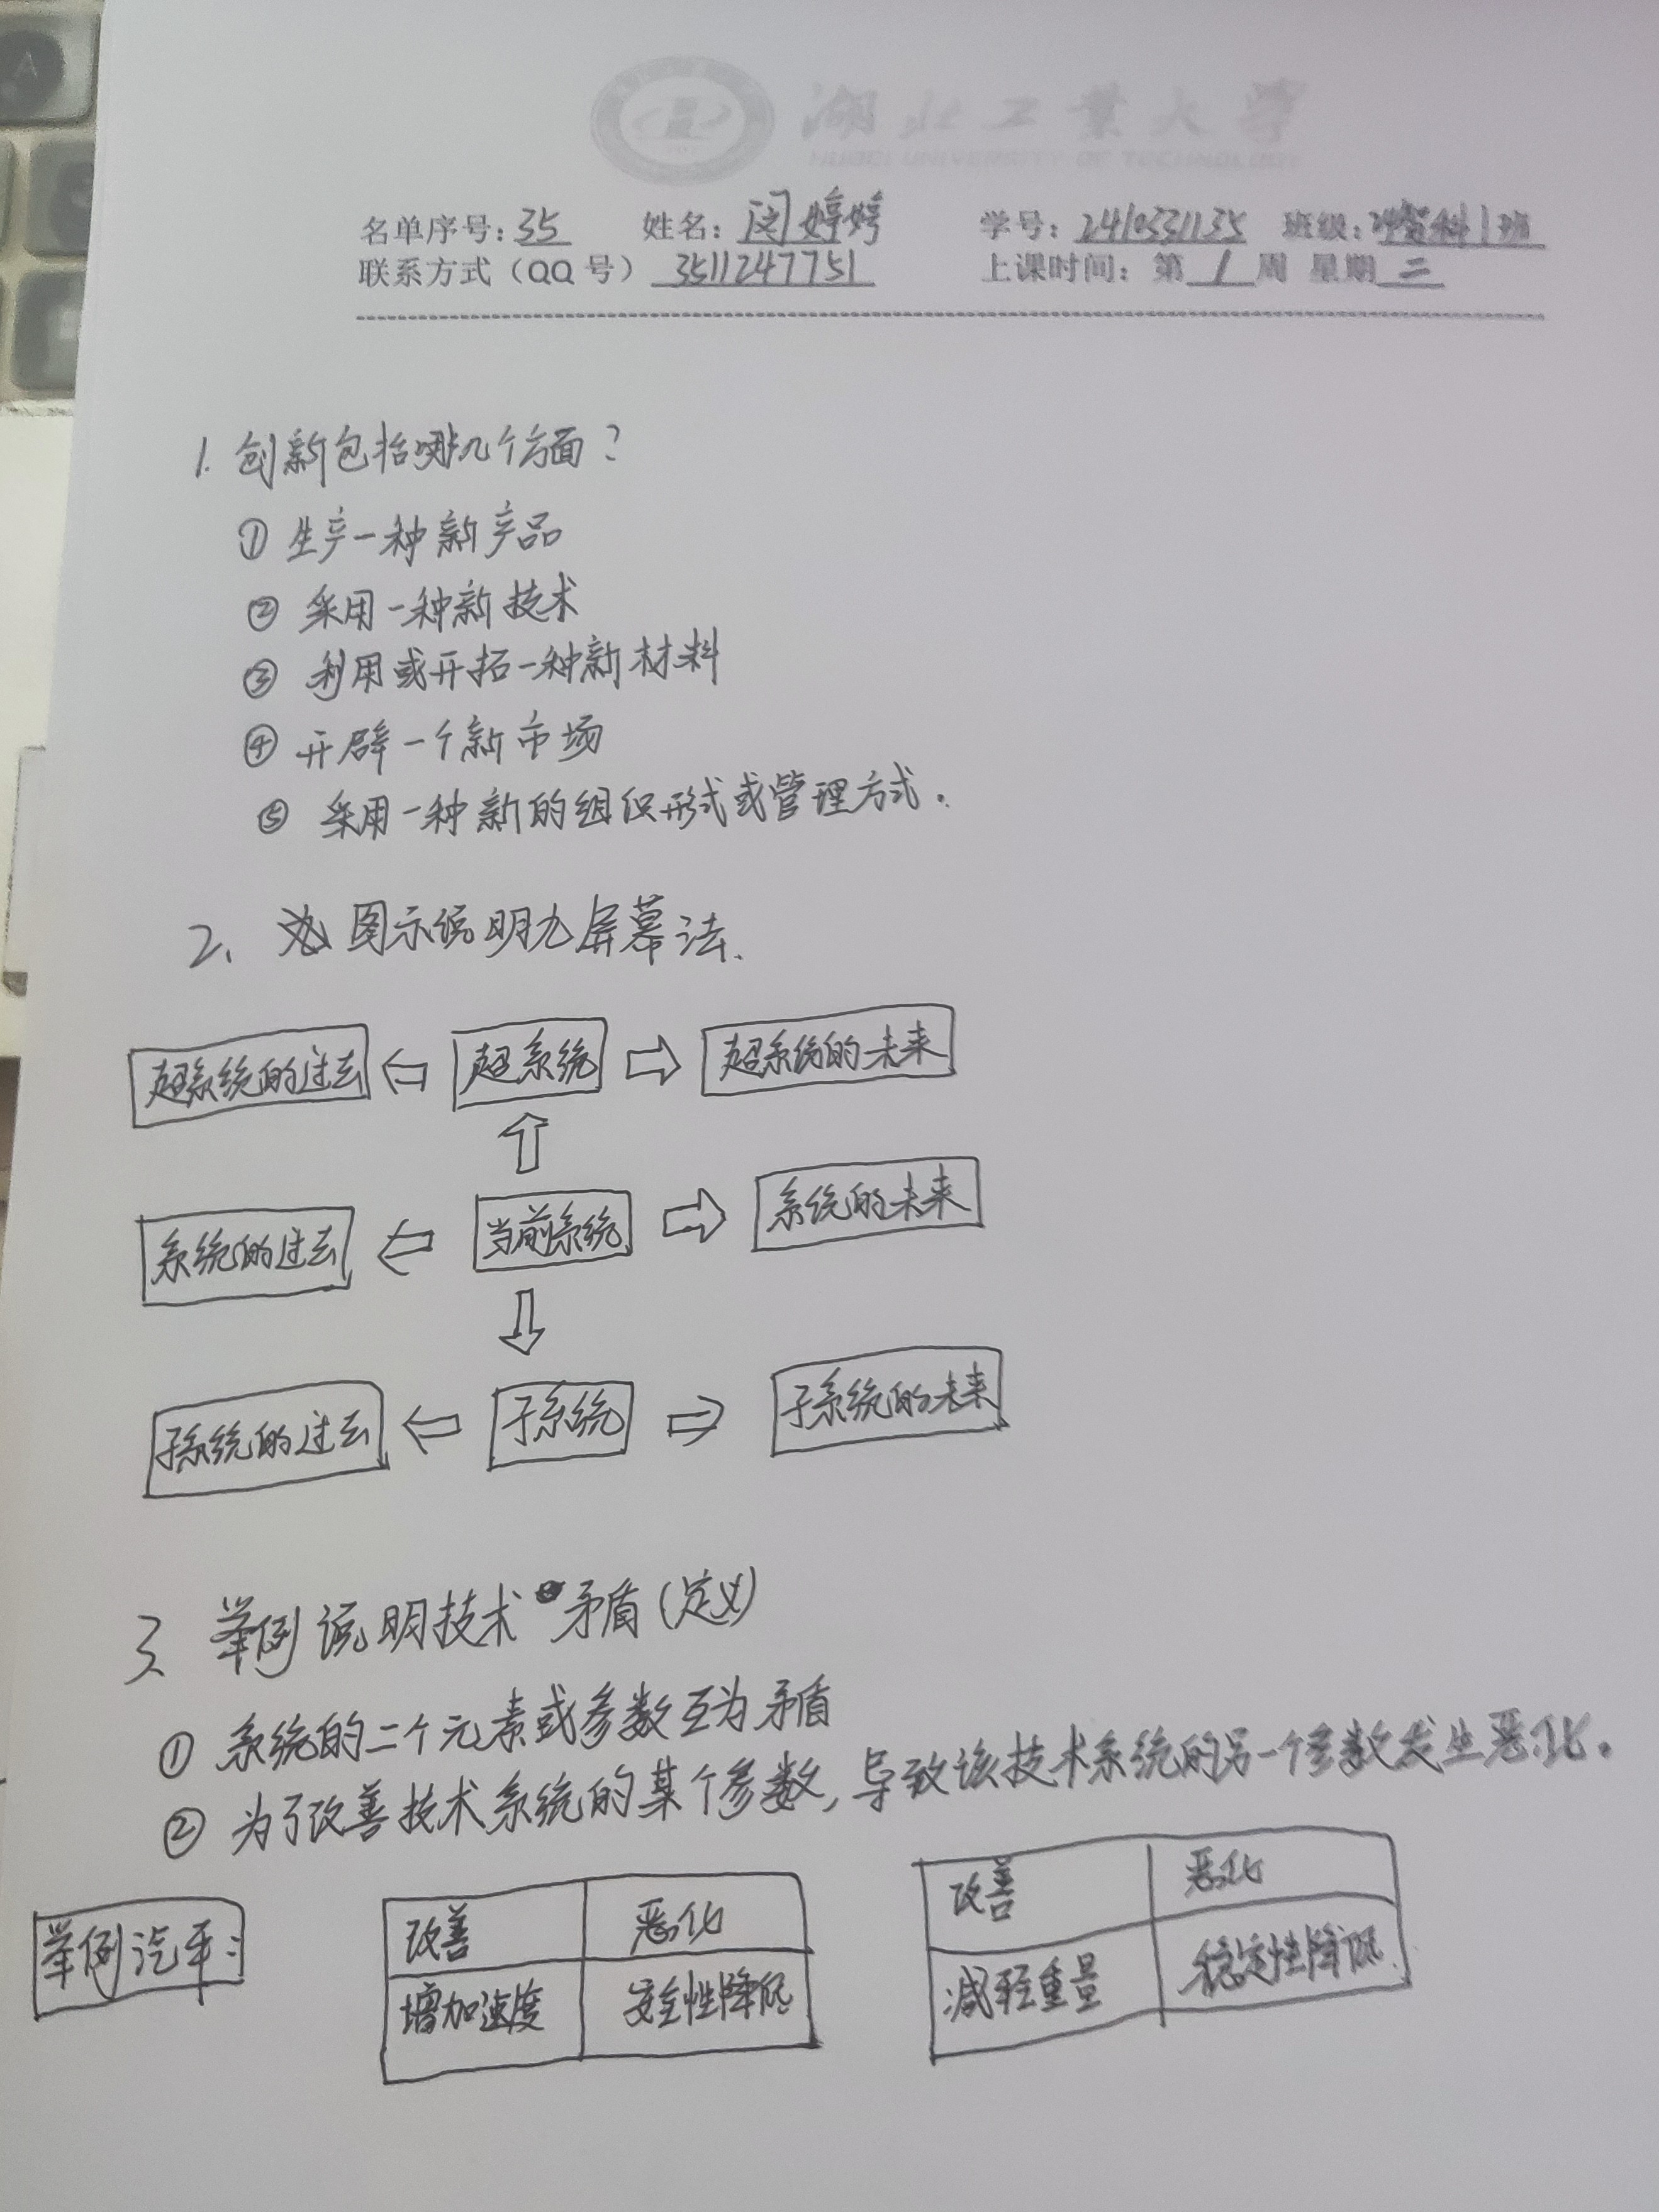 湖北工业大学
HUBEI UNIVERSITY OF TECHNOLOGY
名单序号：35 姓名：闵婷婷 学号：2410531135 班级：24智科1班
联系方式（QQ 号）3511247751 上课时间：第 1 周 星期 二
1. 创新包括哪几个方面？
① 生产一种新产品
② 采用一种新技术
③ 利用或开拓一种新材料
④ 开辟一个新市场
⑤ 采用一种新的组织形式或管理方式.
2. 图示说明九屏幕法.
超系统的过去 超系统 超系统的未来
系统的过去 当前系统 系统的未来
子系统的过去 子系统 子系统的未来
3、举例说明技术矛盾(定义)
① 系统的二个元素或参数互为矛盾
② 为了改善技术系统的某个参数, 导致该技术系统的另一个参数发生恶化。
举例汽车:
改善 恶化
增加速度 安全性降低
改善 恶化
减轻重量 稳定性降低.